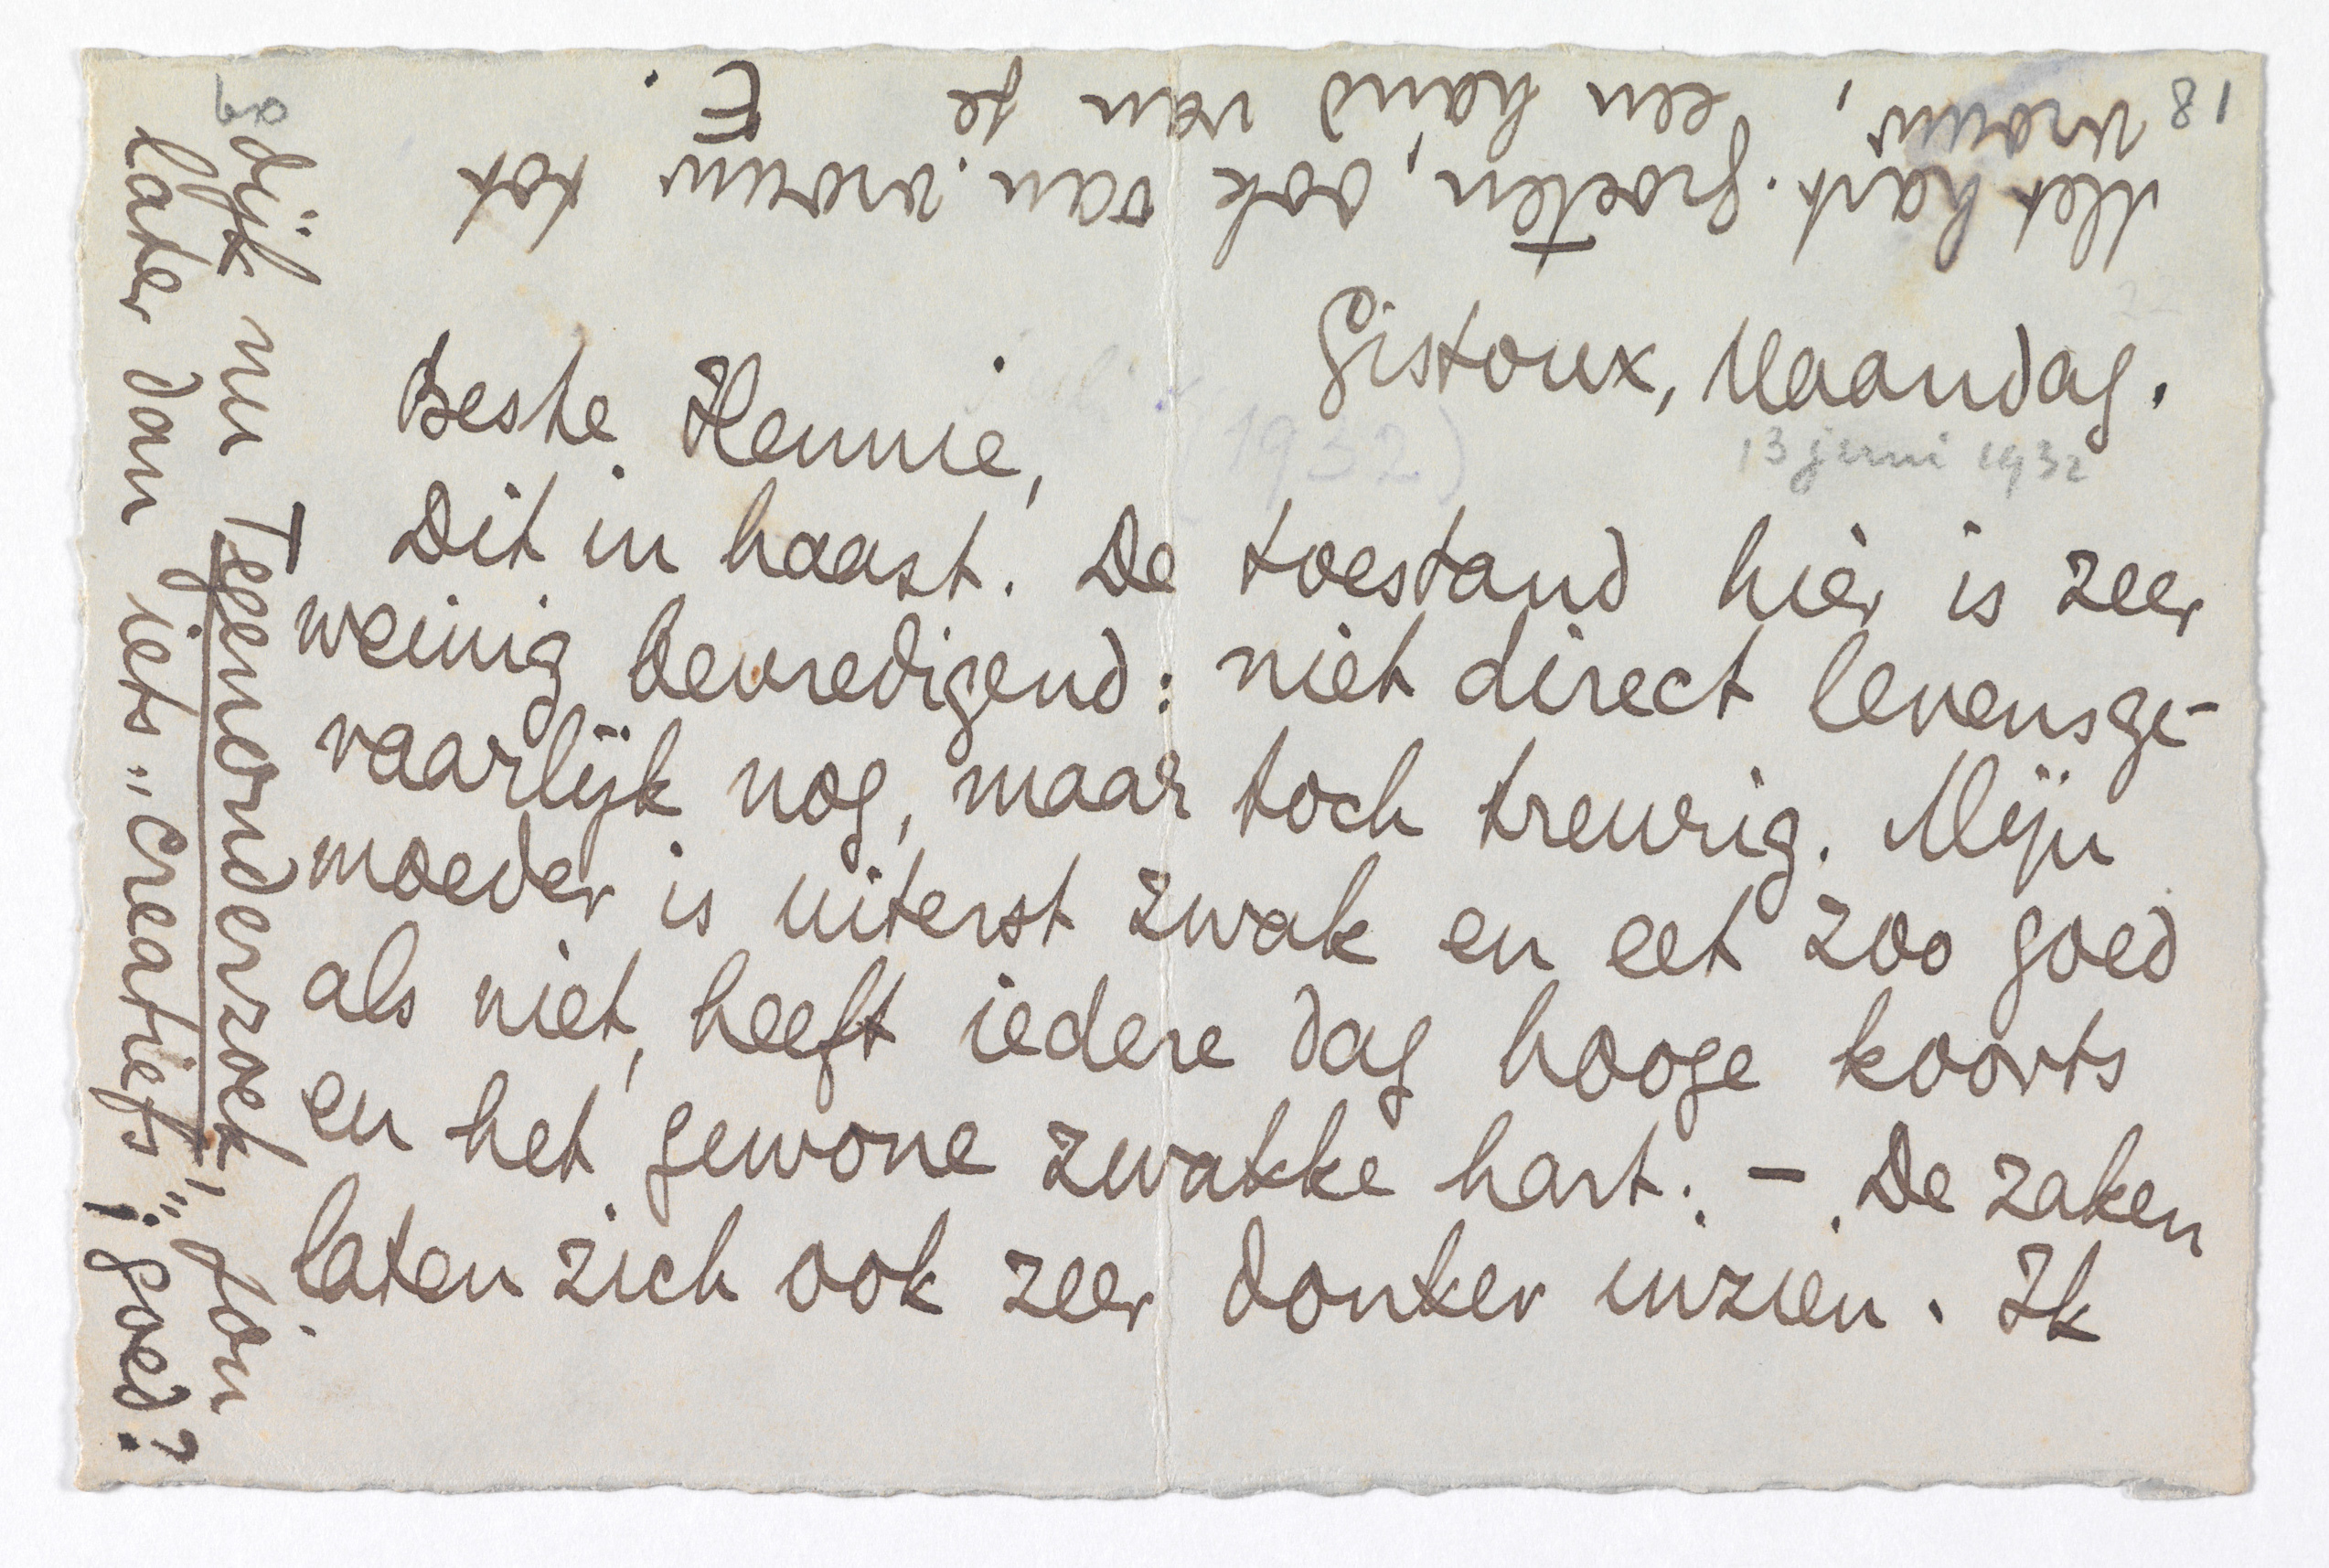 181
Gistoux, Maandag.
13 juni 1932
1932)
Beste Hennie,
Dit in haast. De toestand hier is zeer
weinig bevredigend: niet direct levensge-
vaarlijk nog, maar toch treurig. Mijn
moeder is uiterst zwak en eet zoo goed
als niet, heeft iedere dag hooge koorts
en het gewone zwakke hart. — De zaken
laten zich ook zeer donker inzien. Ik
dijk nu Tegenonderzoek, jou
later dan iets „creatiefs"; goed?
Met hart. groeten, ook van vrouw tot
vrouw, een hand van je
E.